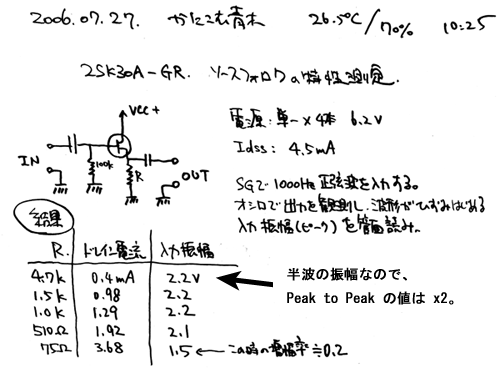 2006.07.27. かにこむ青木 26.5℃/70% 10:25
2SK30A-GR. ソースフォロワの特性測定.
VCC+
電源:単一×4本 6.2V
Idss: 4.5mA
IN
100k
R
OUT
SGで1000Hz正弦波を入力する。
オシロで出力を観測し、波形がひずみはじめる
入力振幅(ピーク)を管面読み。
結果
R. ドレイン電流 入力振幅
4.7k 0.4mA 2.2V
1.5k 0.98 2.2
1.0k 1.29 2.2
510Ω 1.92 2.1
75Ω 3.68 1.5 ← この時の増幅率≒0.2
半波の振幅なので、
Peak to Peak の値は x2。